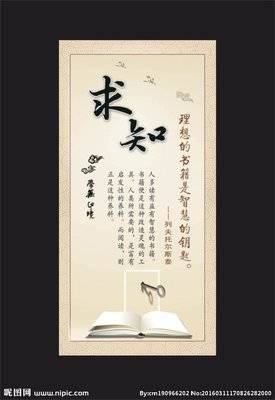 求知
理想的书籍是智慧的钥匙。
——列夫托尔斯泰
人多读有益有智慧的书籍。
书籍便是这种改造灵魂的工
具。人类所需要的，是富有
启发性的养料。而阅读，则
正是这种养料。
学无止境
昵图网 www.nipic.com
By:cm190966202 No:20160311170826282000